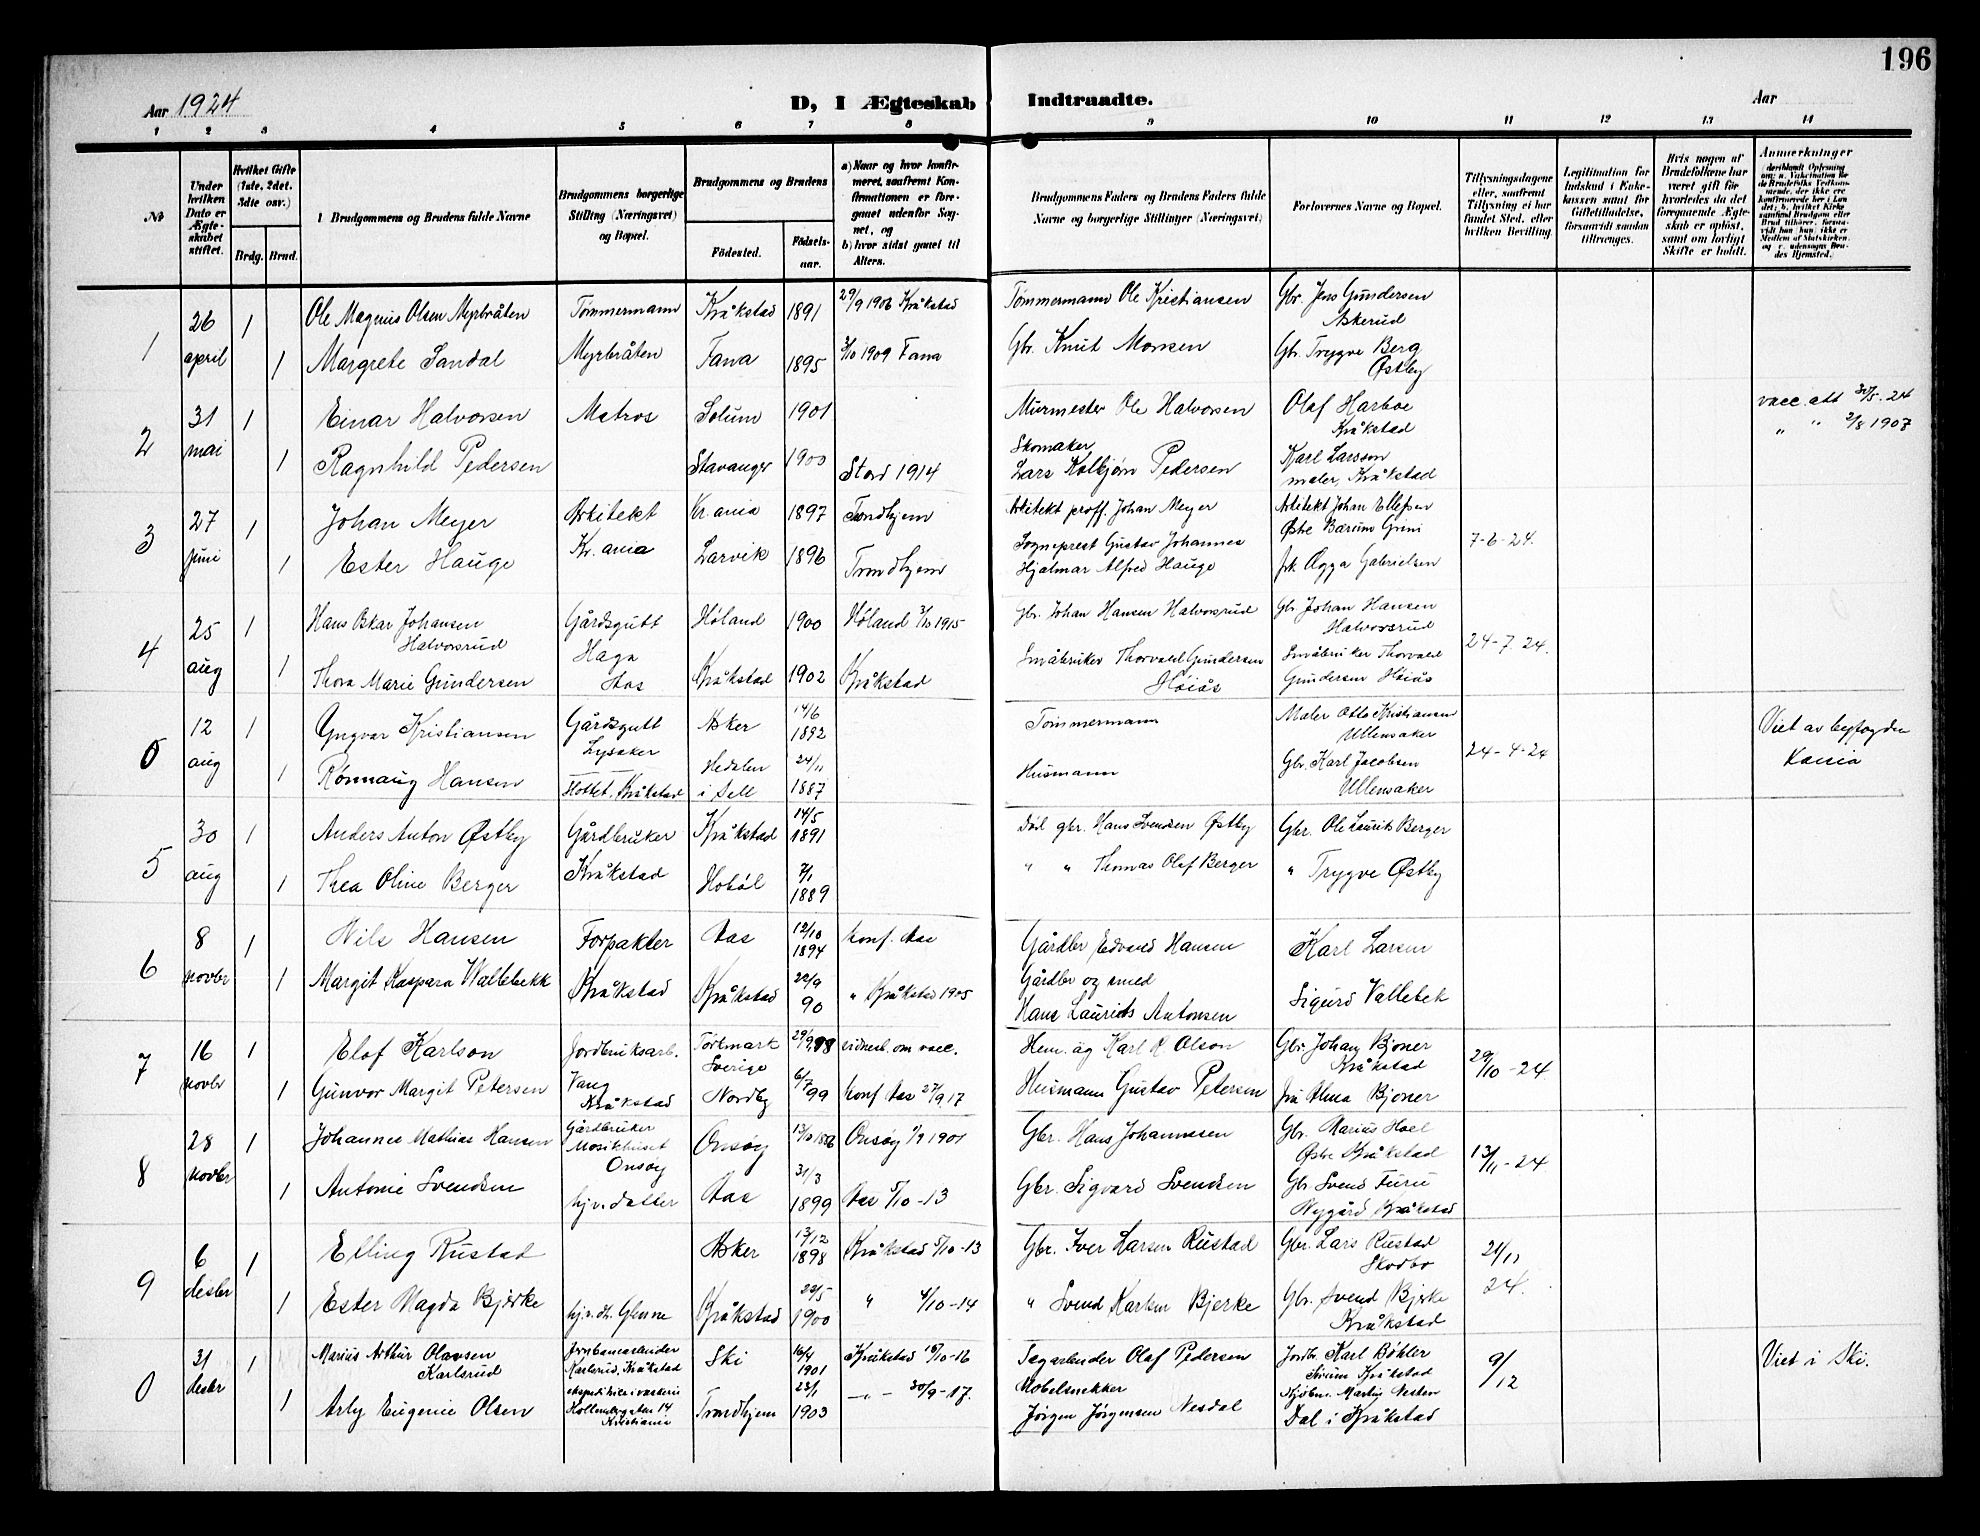 196
Aar 1924
D, I Ægteskab Indtraadte.
Aar
1 2 3 4 5 6 7 8 9 10 11 12 13 14
No
Under hvilken Dato er Ægteskabet stiftet.
Hvilket Gifte (1ste, 2det, 3die osv.)
Brdg. Brud.
Brudgommens og Brudens fulde Navne
Brudgommens borgerlige Stilling (Næringsvei) og Bopæl.
Brudgommens og Brudens
Fødested.
Fødselsaar.
a) Naar og hvor konfirmeret, saafremt Konfirmationen er foregaaet udenfor Sognet, og
b) hvor sidst gaaet til Alters.
Brudgommens Faders og Brudens Faders fulde Navne og borgerlige Stillinger (Næringsvei)
Forlovernes Navne og Bopæl.
Tillysningsdagene eller, saafremt Tillysning ei har fundet Sted, efter hvilken Bevilling.
Legitimation for Indskud i Enkekassen samt for Giftetilladelse, forsaavidt saadan tiltrænges.
Hvis nogen af Brudefolkene har været gift før hvorledes da det foregaaende Ægteskab er opløst, samt om lovligt Skifte er holdt.
Anmerkninger
1 26 april 1 Ole Magnus Olsen Myrbråten Tømmermann Kråkstad 1891 29/9 1906 Kråkstad Tømmermann Ole Kristiansen Gbr. Jens Gundersen Askerud
1 Margrete Sandal Myrbråten Fana 1895 3/10 1909 Fana Gbr. Knut Monsen Gbr. Trygve Berg Østby
2 31 mai 1 Einar Halvorsen Matros Solum 1901 Murmester Ole Halvorsen Olaf Harboe Kråkstad vacc. att 30/5-24
1 Ragnhild Pedersen Stavanger 1900 Stord 1914 Skomaker Lars Kolbjørn Pedersen Karl Larsson maler, Kråkstad " " 2/8 1907
3 27 juni 1 Johan Meyer Arkitekt Kr.ania 1897 Trondhjem Arkitekt proff. Johan Meyer Arkitekt Johan Ellefsen Østre Bærum Grini 7-6-24.
1 Ester Hauge Kr.ania Larvik 1896 Trondhjem Sogneprest Gustav Johannes Hjalmar Alfred Hauge frk Agga Gabrielsen
4 25 aug 1 Hans Oskar Johansen Halvorsrud Gårdsgutt Haga Høland 1900 Høland 3/10 1915 Gbr. Johan Hansen Halvorsrud Gbr Johan Hansen Halvorsrud 24-7-24.
1 Thora Marie Gundersen Kråkstad 1902 Kråkstad Småbruker Thorvald Gundersen Høiås Småbruker Thorvald Gundersen Høiås
0 12 aug 1 Yngvar Kristiansen Gårdsgutt Lysaker Asker 14/6 1892 Tømmermann Maler Otto Kristiansen Ullensaker 24-4-24 Viet av byfogden Kania
1 Rønnaug Hansen Kråkstad Hedalen i Sell 24/11 1887 Husmann Gbr. Karl Jacobsen Ullensaker
5 30 aug 1 Anders Anton Østby Gårdbruker Kråkstad 14/5 1891 Død gbr. Hans Svendsen Østby Gbr. Ole Laurits Berger
1 Thea Oline Berger Kråkstad Hobøl 1889 " " Thomas Olaf Berger " Trygve Østby
6 8 novbr 1 Nils Hansen Forpakter Aas 12/10 1894 konf. Aas Gårdbr Edvard Hansen Karl Larsen
1 Margit Kaspara Wallebekk Kråkstad Kråkstad 22/9 90 " Kråkstad 1905 Gårdbr og smed Hans Laurids Antonsen Sigurd Vallebek
7 16 novbr 1 Elof Karlson Jordbruksarb. Sverige 29/9 98 vidnesb. om vacc. Hem. äg Karl K. Olson Gbr. Johan Bjoner Kråkstad 29/10-24
1 Gunvor Margit Petersen Vang Kråkstad Nordby 6/7 99 konf Aas 27/9 17 Husmann Gustav Petersen fru Alma Bjoner
8 28 novbr 1 Johannes Mathias Hansen Gårdbruker Onsøy Onsøy Onsøy 1901 Gbr. Hans Johannesen Gbr. Marius Hoel Østre Kråkstad 13/11-24
1 Antonie Svendsen hjv. datter Aas 31/3 1899 Aas 5/10-13 Gbr. Sigvard Svendsen Gbr Svend Furu Nygård Kråkstad
9 6 desbr 1 Elling Rustad Asker 13/12 1898 Kråkstad 5/10-13 Gbr. Iver Larsen Rustad Gbr. Lars Rustad Skodbo 21/11 24.
1 Ester Magda Bjerke hjv. dt. Glenne Kråkstad 22/5 1900 " 4/10-14 " Svend Karlsen Bjerke Gbr. Svend Bjerke Kråkstad
0 31 desbr 1 Marius Arthur Olavsen Karlsrud Jernbanearbeider Karlsrud, Kråkstad Ski 16/4 1901 Kråkstad 15/10-16 Sagarbeider Olaf Pedersen Jordbr. Karl Bøhler Kråkstad 9/12 Viet i Ski.
1 Arly Eugenie Olsen Kristiania Trondhjem 23/1 1903 -"- 30/9-17. Møbelsnekker Jørgen Jørgensen Nesdal Kjøbm. Martin Nesten Dal i Kråkstad